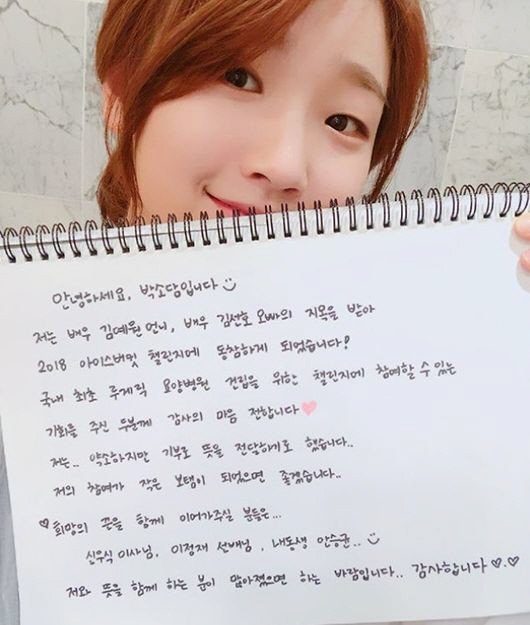 안녕하세요, 박소담입니다 :)
저는 배우 김예원 언니, 배우 김선호 오빠의 지목을 받아
2018 아이스버킷 챌린지에 동참하게 되었습니다!
국내 최초 루게릭 요양병원 건립을 위한 챌린지에 참여할 수 있는
기회를 주신 두분께 감사의 마음 전합니다♥
저는.. 약소하지만 기부로 뜻을 전달하기로 했습니다..
저의 참여가 작은 보탬이 되었으면 좋겠습니다..
♡희망의 끈을 함께 이어가주실 분들은...
신우식 이사님, 이정재 선배님, 내동생 안승균.. :)
저와 뜻을 함께 하는 분이 많아졌으면 하는 바람입니다.. 감사합니다♡.♡